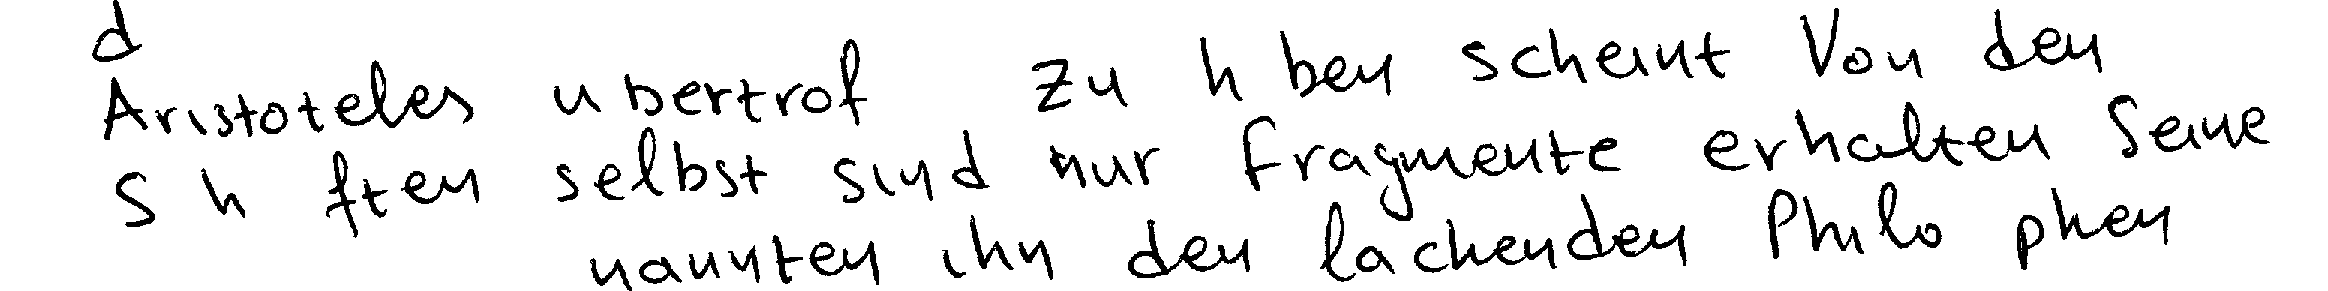 d
Aristoteles ubertrof zu h ben scheint Von den
S h ften selbst sind nur Fragmente erhalten Seine
nannten ihn den lachenden Philo phen